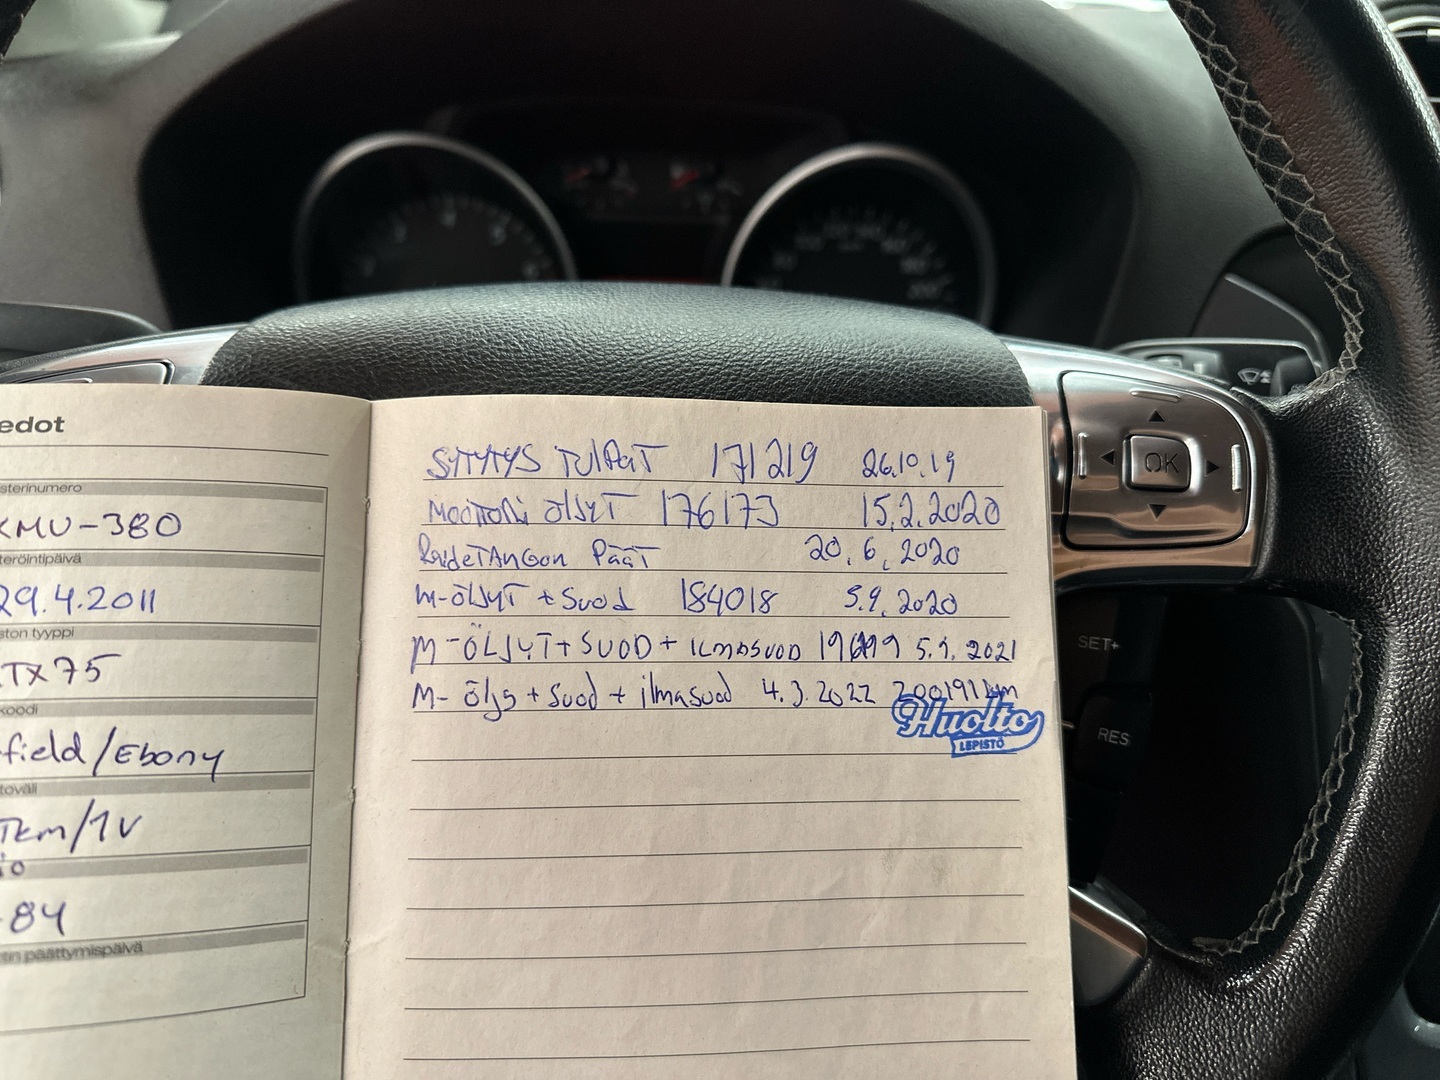 edot
sterinumero
KMU-380
teröintipäivä
29.4.2011
ston tyyppi
TX75
koodi
field/Ebony
toväli
Tkm/1V
io
-84
sin päättymispäivä
SYTYTYS TULPAT 171219 26.10.19
MOOTTORI ÖLJYT 176173 15.2.2020
RaideTANGon PÄÄT 20.6.2020
M-ÖLJYT + Suod 184018 5.9.2020
M-ÖLJYT + SUOD + ILMASUOD 2021
M-öljy + Suod + ilmasuod 4.3.2022 200191km
Huolto
LEPISTÖ
OK
SET+
RES